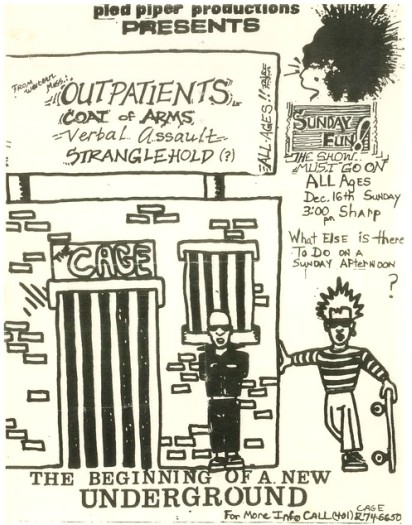 pied piper productions
PRESENTS
FROM WESTERN MASS.!
OUTPATIENTS
COAT of ARMS
Verbal Assault
STRANGLEHOLD (?)
ALL AGES!!
SUNDAY
FUN!!
THE SHOW
MUST GO ON
ALL Ages
Dec. 16th Sunday
3:00 pm Sharp
What Else is there
To Do on a
SUNDAY AFTERNOON
?
THE CAGE
THE BEGINNING OF A NEW
UNDERGROUND
For More Info CALL (401) CAGE 274-6650